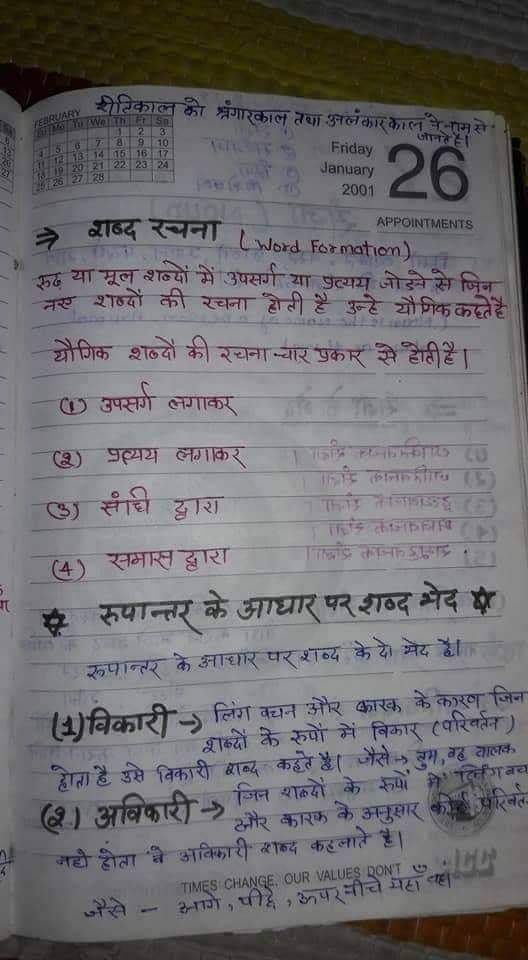 रीतिकाल को श्रंगारकाल तथा अलंकारकाल के नाम से
जानते है।
FEBRUARY
Su Mo Tu We Th Fr Sa
1 2 3
4 5 6 7 8 9 10
11 12 13 14 15 16 17
18 19 20 21 22 23 24
25 26 27 28
Friday
January
2001
26
APPOINTMENTS
⇒ शब्द रचना (Word Formation)
रुढ या मूल शब्दों में उपसर्ग या प्रत्यय जोडने से जिन
नए शब्दों की रचना होती है उन्हे यौगिक कहते है
यौगिक शब्दों की रचना चार प्रकार से होती है।
(1) उपसर्ग लगाकर
(2) प्रत्यय लगाकर
(3) संधि द्वारा
(4) समास द्वारा
रुपान्तर के आधार पर शब्द भेद
रुपान्तर के आधार पर शब्द के दो भेद है।
(1) विकारी → लिंग वचन और कारक के कारण जिन
शब्दों के रुपों में विकार (परिवर्तन)
होता है उसे विकारी शब्द कहते है। जैसे → तुम, वह बालक
(2) अविकारी → जिन शब्दों के रुपों में लिंग वच
और कारक के अनुसार कोई परिवर्त
नही होता वे अविकारी शब्द कहलाते है।
TIMES CHANGE, OUR VALUES DON'T
जैसे - आगे, पीछे, ऊपर नीचे यहाँ वहां